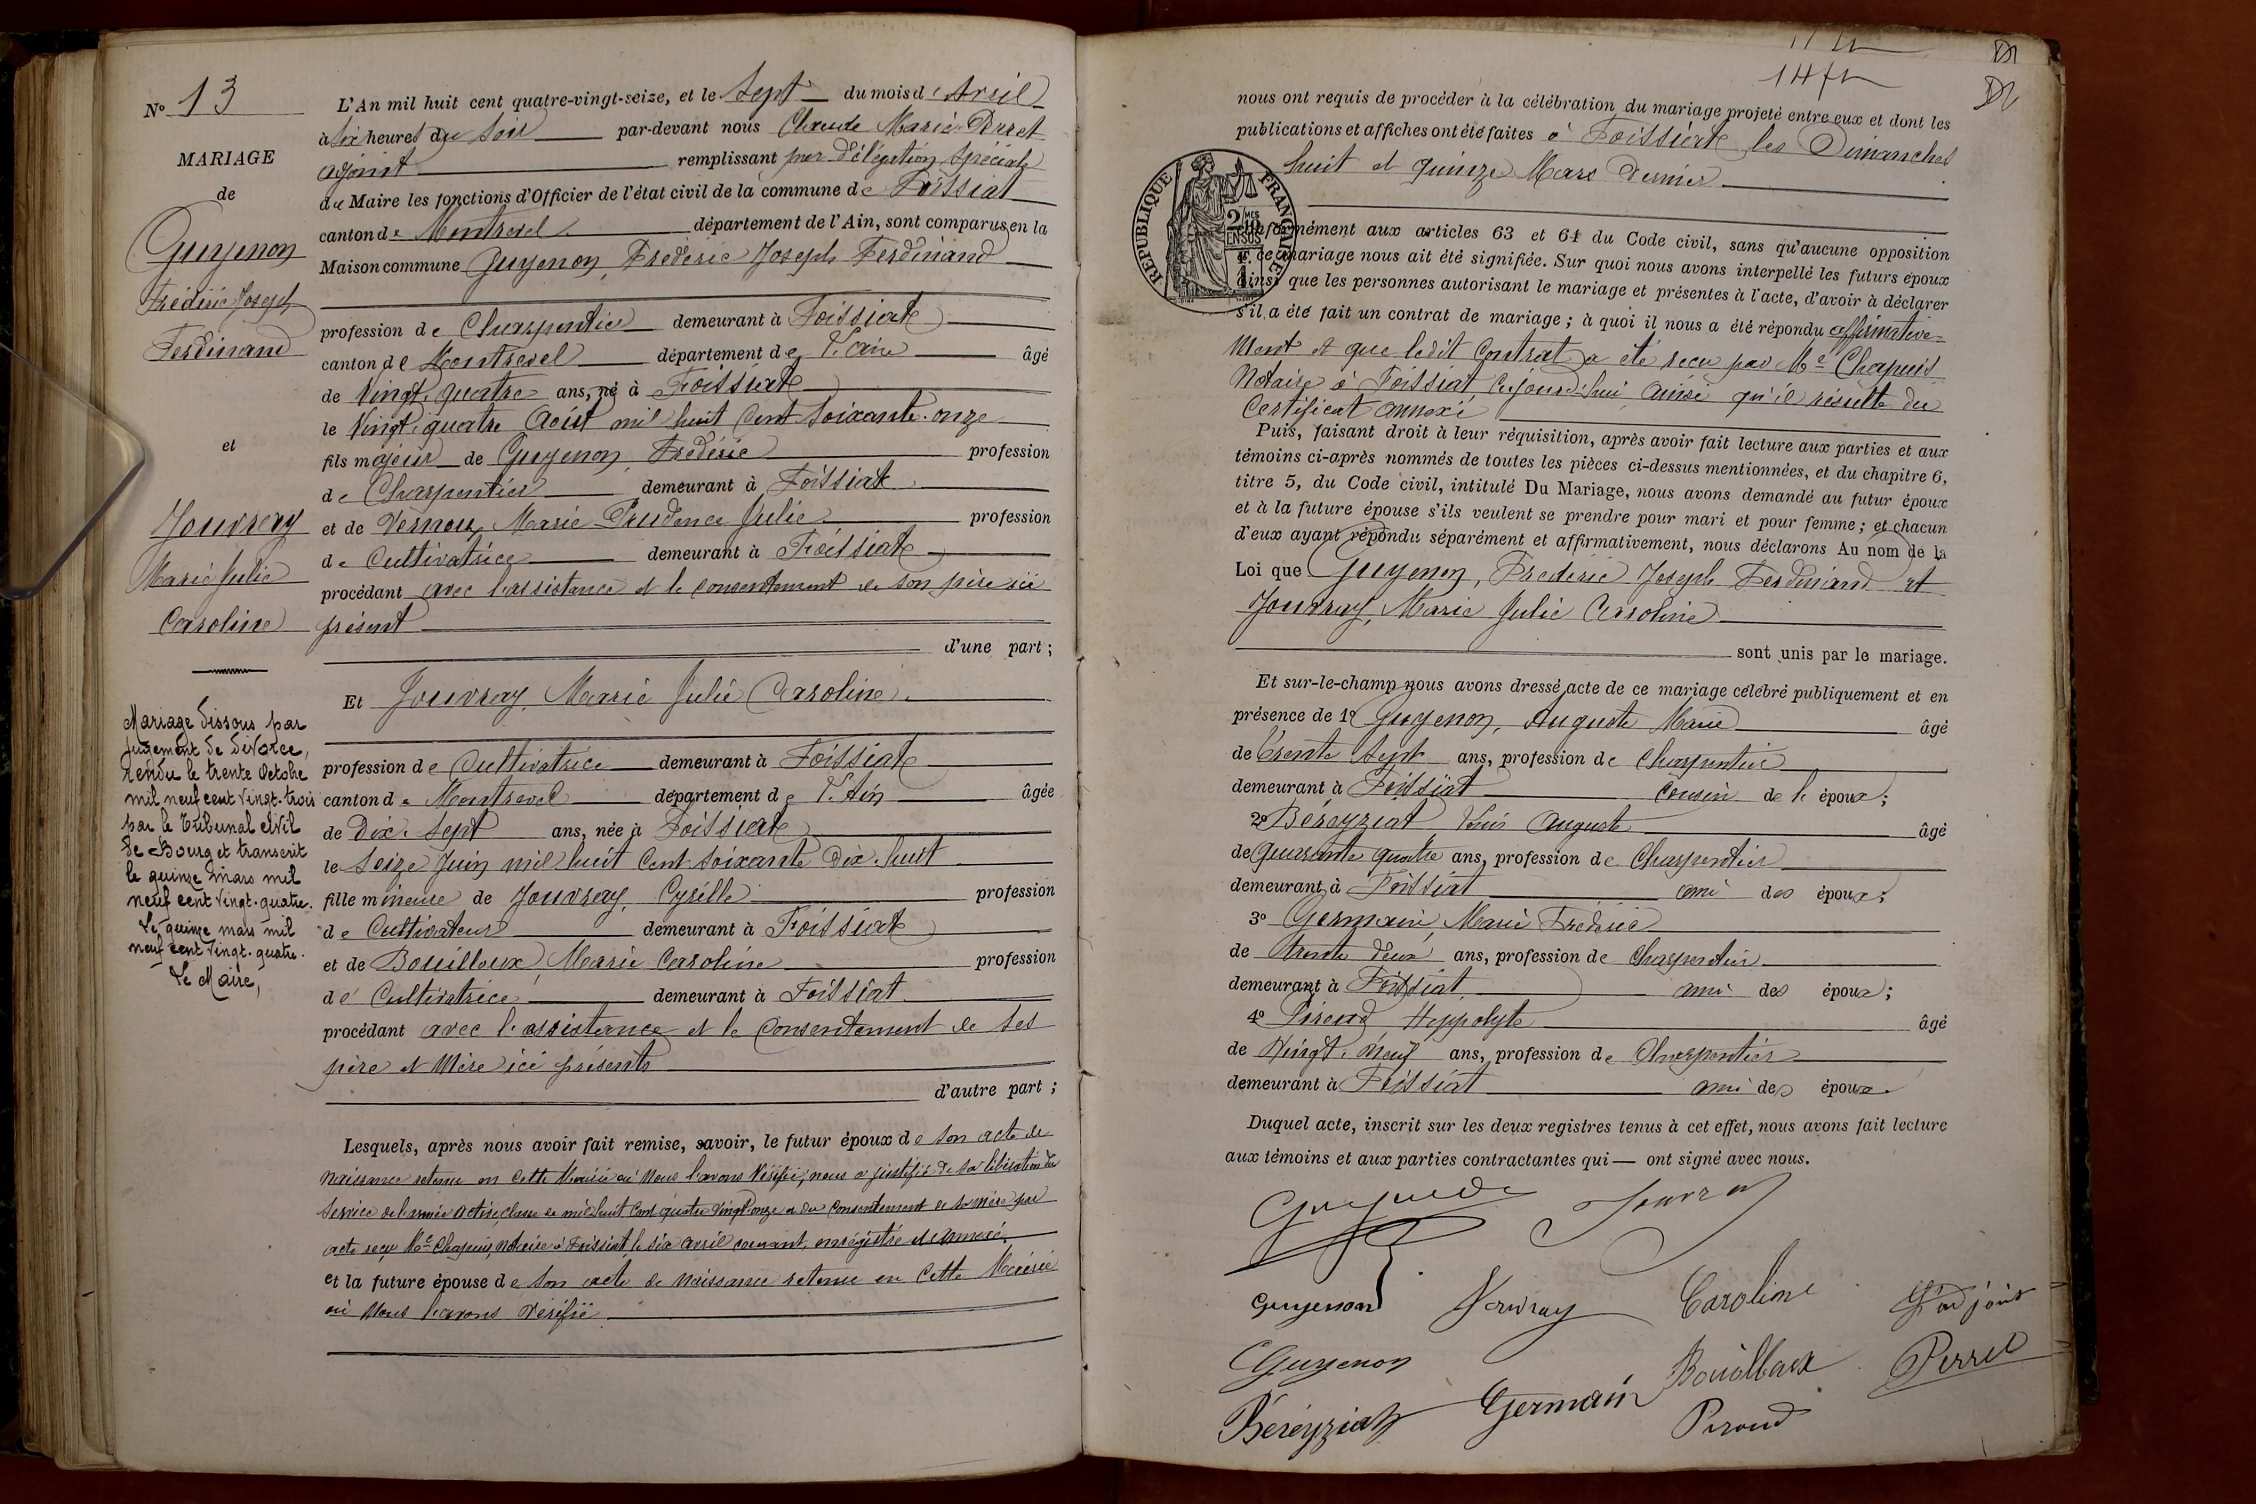 N° 13
MARIAGE
de
Guyenon
Frédéric Joseph
Ferdinand
et
Jouvray
Marie Julie
Caroline
Mariage dissous par
jugement de divorce,
rendu le trente Octobre
mil neuf cent vingt-trois
par le Tribunal civil
de Bourg et transcrit
le quinze mars mil
neuf cent vingt-quatre.
Le quinze mars mil
neuf cent vingt-quatre.
Le Maire,
L'An mil huit cent quatre-vingt-seize, et le Sept du mois d'Avril
à Six heures du Soir par-devant nous Claude Marie Perret
adjoint remplissant par délégation spéciale
du Maire les fonctions d'Officier de l'état civil de la commune de Foissiat
canton de Montrevel département de l'Ain, sont comparus en la
Maison commune Guyenon, Frédéric Joseph Ferdinand
profession de Charpentier demeurant à Foissiat
canton de Montrevel département de l'Ain âgé
de Vingt-quatre ans, né à Foissiat
le Vingt-quatre Août mil huit cent soixante-onze
fils majeur de Guyenon, Frédéric profession
de Charpentier demeurant à Foissiat
et de Vernoux, Marie Prudence Julie profession
de Cultivatrice demeurant à Foissiat
procédant avec l'assistance et le consentement de son père ici
présent
d'une part ;
Et Jouvray, Marie Julie Caroline
profession de Cultivatrice demeurant à Foissiat
canton de Montrevel département de l'Ain âgée
de Dix-Sept ans, née à Foissiat
le Seize Juin mil huit cent soixante Dix-huit
fille mineure de Jouvray, Cyrille profession
de Cultivateur demeurant à Foissiat
et de Bouilloux, Marie Caroline profession
de Cultivatrice demeurant à Foissiat
procédant avec l'assistance et le consentement de ses
père et Mère ici présents
d'autre part ;
Lesquels, après nous avoir fait remise, savoir, le futur époux de son acte de
Naissance retenu en cette Mairie où Nous l'avons Vérifié, nous a justifié de sa libération du
service de l'armée active, classe de mil huit cent quatre vingt onze et du consentement de sa mère par
acte reçu Me Chapuis, Notaire à Foissiat, le six avril courant, enregistré et annexé,
et la future épouse de son acte de Naissance retenu en cette Mairie
où Nous l'avons Vérifié
14 fr
nous ont requis de procéder à la célébration du mariage projeté entre eux et dont les
publications et affiches ont été faites à Foissiat les Dimanches
huit et quinze Mars dernier
RÉPUBLIQUE FRANÇAISE
2 MES 10 EN SUS
conformément aux articles 63 et 64 du Code civil, sans qu'aucune opposition
à ce mariage nous ait été signifiée. Sur quoi nous avons interpellé les futurs époux
ainsi que les personnes autorisant le mariage et présentes à l'acte, d'avoir à déclarer
s'il a été fait un contrat de mariage ; à quoi il nous a été répondu affirmative-
ment et que ledit Contrat a été reçu par Me Chapuis
Notaire à Foissiat cejourd'hui ainsi qu'il résulte du
Certificat annexé
Puis, faisant droit à leur réquisition, après avoir fait lecture aux parties et aux
témoins ci-après nommés de toutes les pièces ci-dessus mentionnées, et du chapitre 6,
titre 5, du Code civil, intitulé Du Mariage, nous avons demandé au futur époux
et à la future épouse s'ils veulent se prendre pour mari et pour femme ; et chacun
d'eux ayant répondu séparément et affirmativement, nous déclarons Au nom de la
Loi que Guyenon, Frédéric Joseph Ferdinand et
Jouvray, Marie Julie Caroline
sont unis par le mariage.
Et sur-le-champ nous avons dressé acte de ce mariage célébré publiquement et en
présence de 1° Guyenon, Auguste Marie âgé
de trente sept ans, profession de Charpentier
demeurant à Foissiat cousin de l'époux ;
2° Béreyziat Louis Auguste âgé
de quarante quatre ans, profession de Charpentier
demeurant à Foissiat ami des époux ;
3° Germain, Marie Frédéric
de trente deux ans, profession de Charpentier
demeurant à Foissiat, ami des époux ;
4° Piroud Hippolyte âgé
de Vingt-neuf ans, profession de Charpentier
demeurant à Foissiat ami des époux.
Duquel acte, inscrit sur les deux registres tenus à cet effet, nous avons fait lecture
aux témoins et aux parties contractantes qui ont signé avec nous.
Jouvray
Guyenon Jouvray Caroline L'adjoint
Guyenon Bouilloux Perret
Béreyziat Germain Piroud